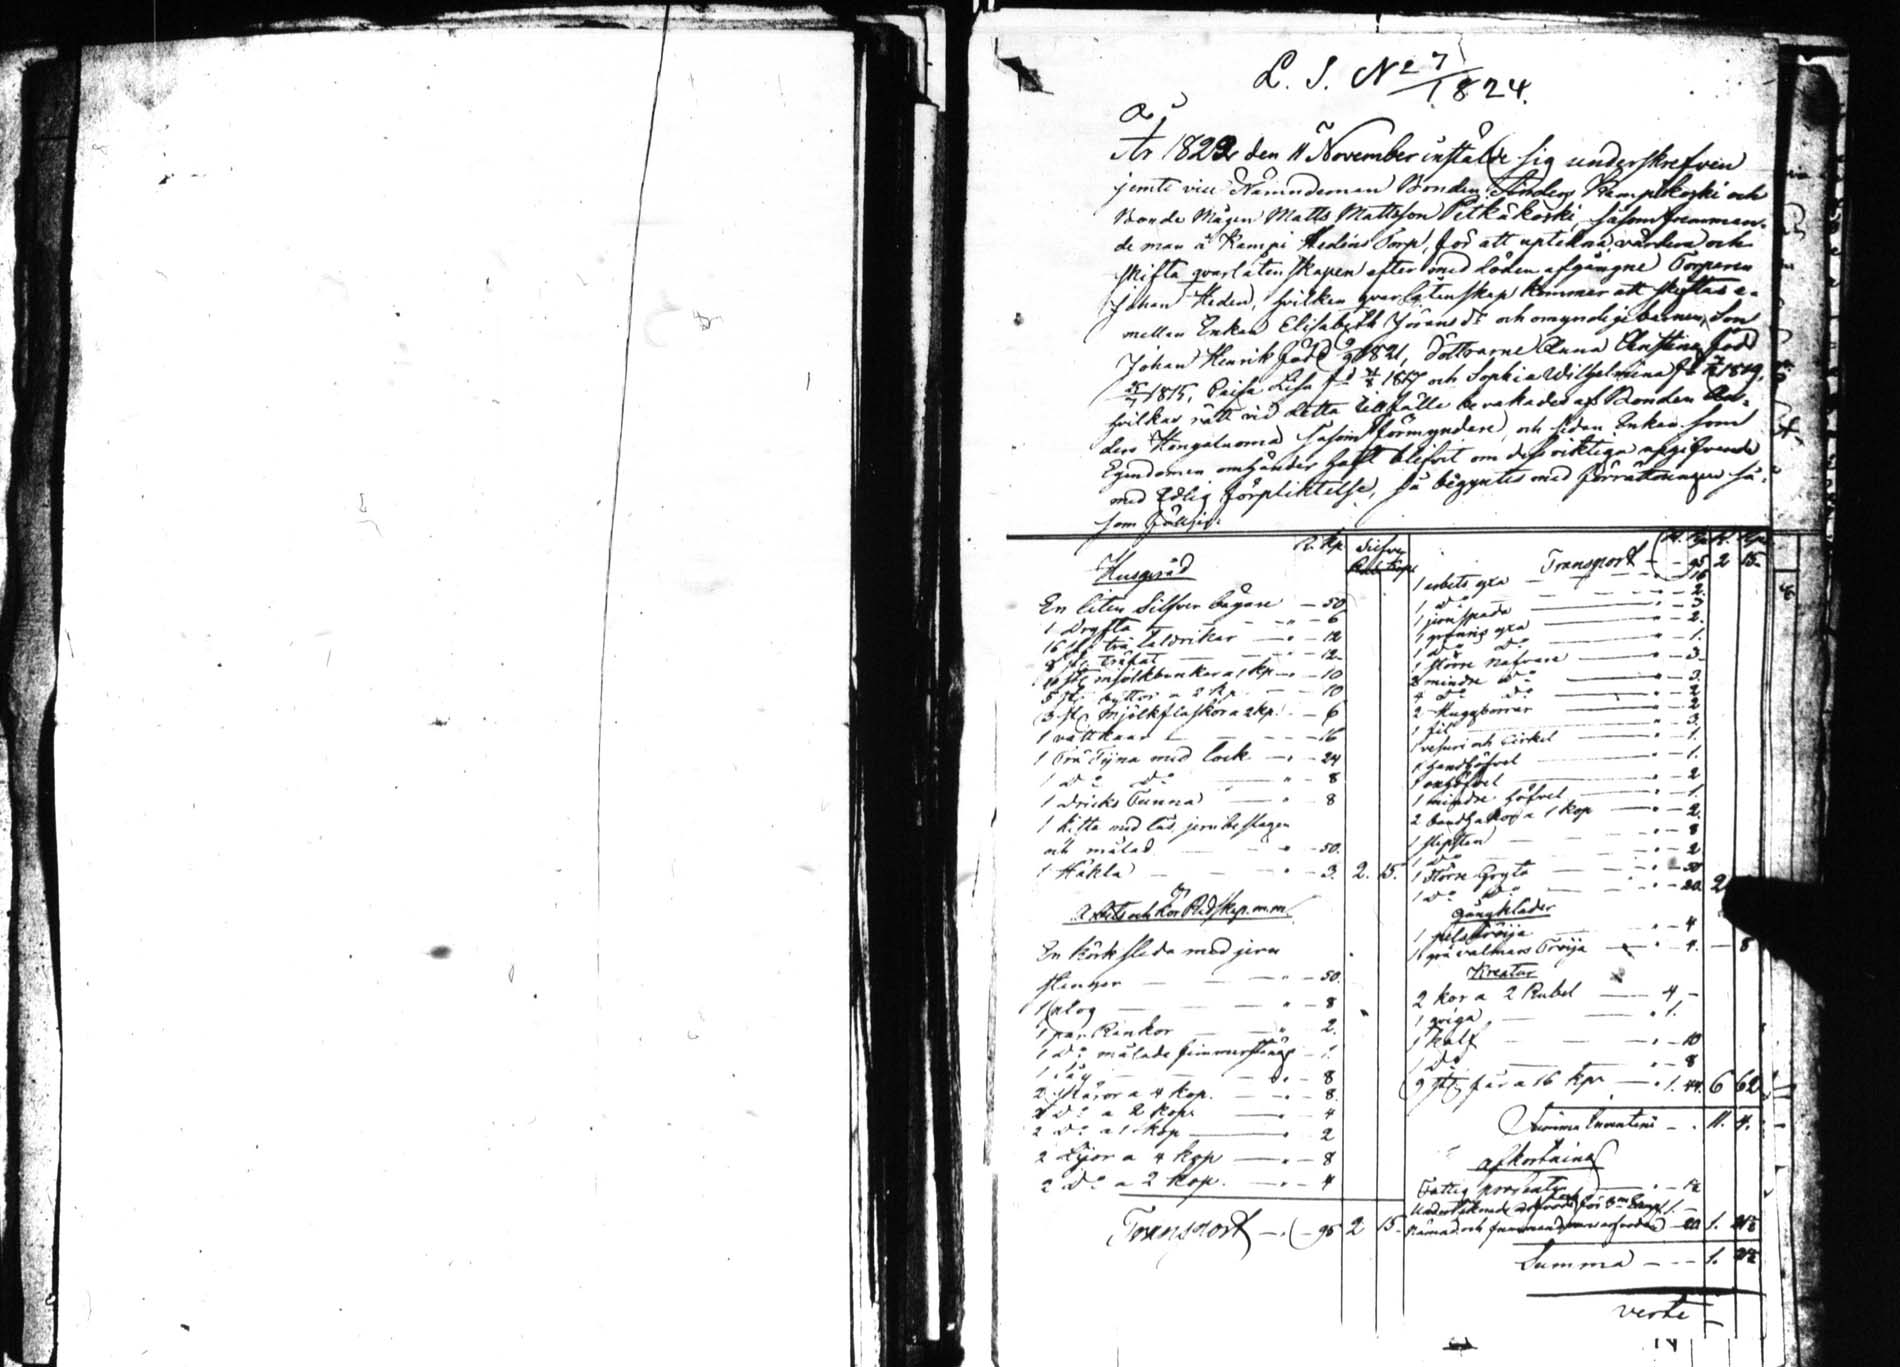 L. S. No 7/1824.
År 1822 den 11 November instälde sig underskrefven
jemte vice Nämndeman Bonden Anders och
Bonde Mågen Matts Mattsson Pitkäkoski, såsom fremman-
de man å Kampi Hedéns Torp, för att uptekna värdera och
skifta qvarlåtenskapen efter med döden afgångne Torparen
Johan Heden, hvilken qvarlåtenskap kommer att skiftas e-
mellan Enkan Elisabeth Jöransdr och omyndige barnen, Son
Johan Henrik född 1821, döttrarne Anna Christina född
1815, Caisa Lisa fd 1817 och Sophia Wilhelmina fd 1819,
hvilkas rätt vid detta tillfälle bevakades af Bonden An-
ders såsom förmyndare, och sedan Enkan som
Egendomen omhänder haft blifvit om dess riktiga upgifvande
med Edlig förpliktelse, så begyntes med förrättningen så-
som följer.
R. Kp. Silfver
Rub. Kop.
Husgeråd
En liten Silfver bägare — 50
1 Dryfta — 6
16 st. trä taldrikar — 12
8 st. träfat — 12
10 st. mjölkbunkar a 1 kp — 10
5 st. byttor a 2 kp. — 10
3 st. Mjölkflaskor a 2 kp. — 6
1 vattkaar — 16
1 Trä Tijna med lock — 24
1 Do Do — 8
1 Dricks Tunna — 8
1 kista med lås, jernbeslagen
och målad — 50.
1 Häkla — 3. 2. 15.
Arbets och Kör Redskap m.m.
En körk släda med jern
skenor — 50.
1 plog — 8
1 par Rankor — 2.
1 Do målade fimmerstänger — 1.
1 Såg — 8
2 skäror a 4 kop. — 8.
2 Do a 2 kop. — 4
2 Do a 1 kop — 2
2 Lijor a 4 kop — 8
2 Do a 2 kop. — 4
Transport — 95 2 15
R. Kp. R. Kp.
Transport — 95 2 15.
1 arbets yxa — 16
1 Do — 2.
1 jernspada — 3
1 yxa — 2.
1 Do Do — 1.
1 större nafvare — 3
3 mindre Do — 3
4 Do Do — 2
2 Huggborrar — 2
1 fil — 3.
1 och Cirkel — 1
1 handhöfvel — 1.
1 — 2
1 mindre höfvel — 1.
2 a 1 kop — 2.
1 slipsten — 8
1 Do — 2
1 större Gryta — 50
1 Do Do — 20. 2
Gångkläder
1 pelströija — 4
1 grå valmars Tröija — 4. — 8
Kreatur
2 kor a 2 Rubel — 4 —
1 qviga — 1.
1 kalf — 10
1 Do — 8
9 st. får a 16 kp. — 1. 44. 6 62
Summa Inventarii — 11. 4.
afkortning
Fattig procenten — 1½
— 20 1. 21½
Summa — 1. 21½
verte